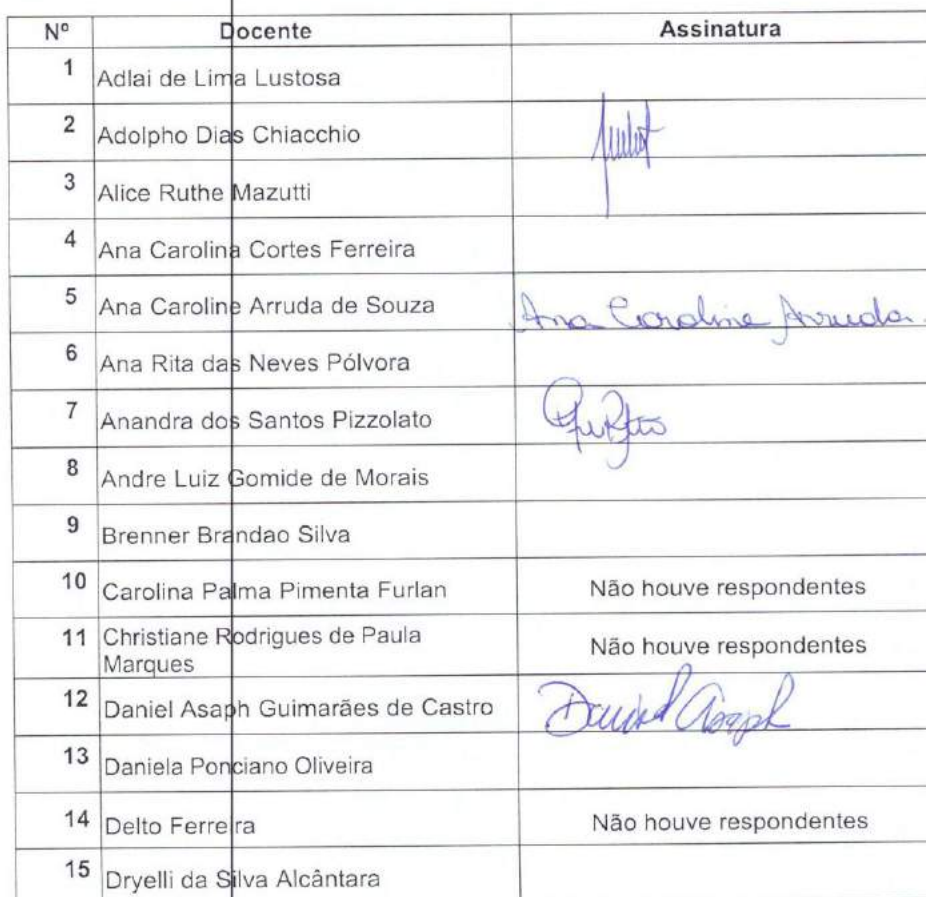 Nº Docente Assinatura
1 Adlai de Lima Lustosa
2 Adolpho Dias Chiacchio
3 Alice Ruthe Mazutti
4 Ana Carolina Cortes Ferreira
5 Ana Caroline Arruda de Souza Ana Caroline Arruda
6 Ana Rita das Neves Pólvora
7 Anandra dos Santos Pizzolato
8 Andre Luiz Gomide de Morais
9 Brenner Brandao Silva
10 Carolina Palma Pimenta Furlan Não houve respondentes
11 Christiane Rodrigues de Paula
Marques Não houve respondentes
12 Daniel Asaph Guimarães de Castro Daniel Asaph
13 Daniela Ponciano Oliveira
14 Delto Ferreira Não houve respondentes
15 Dryelli da Silva Alcântara